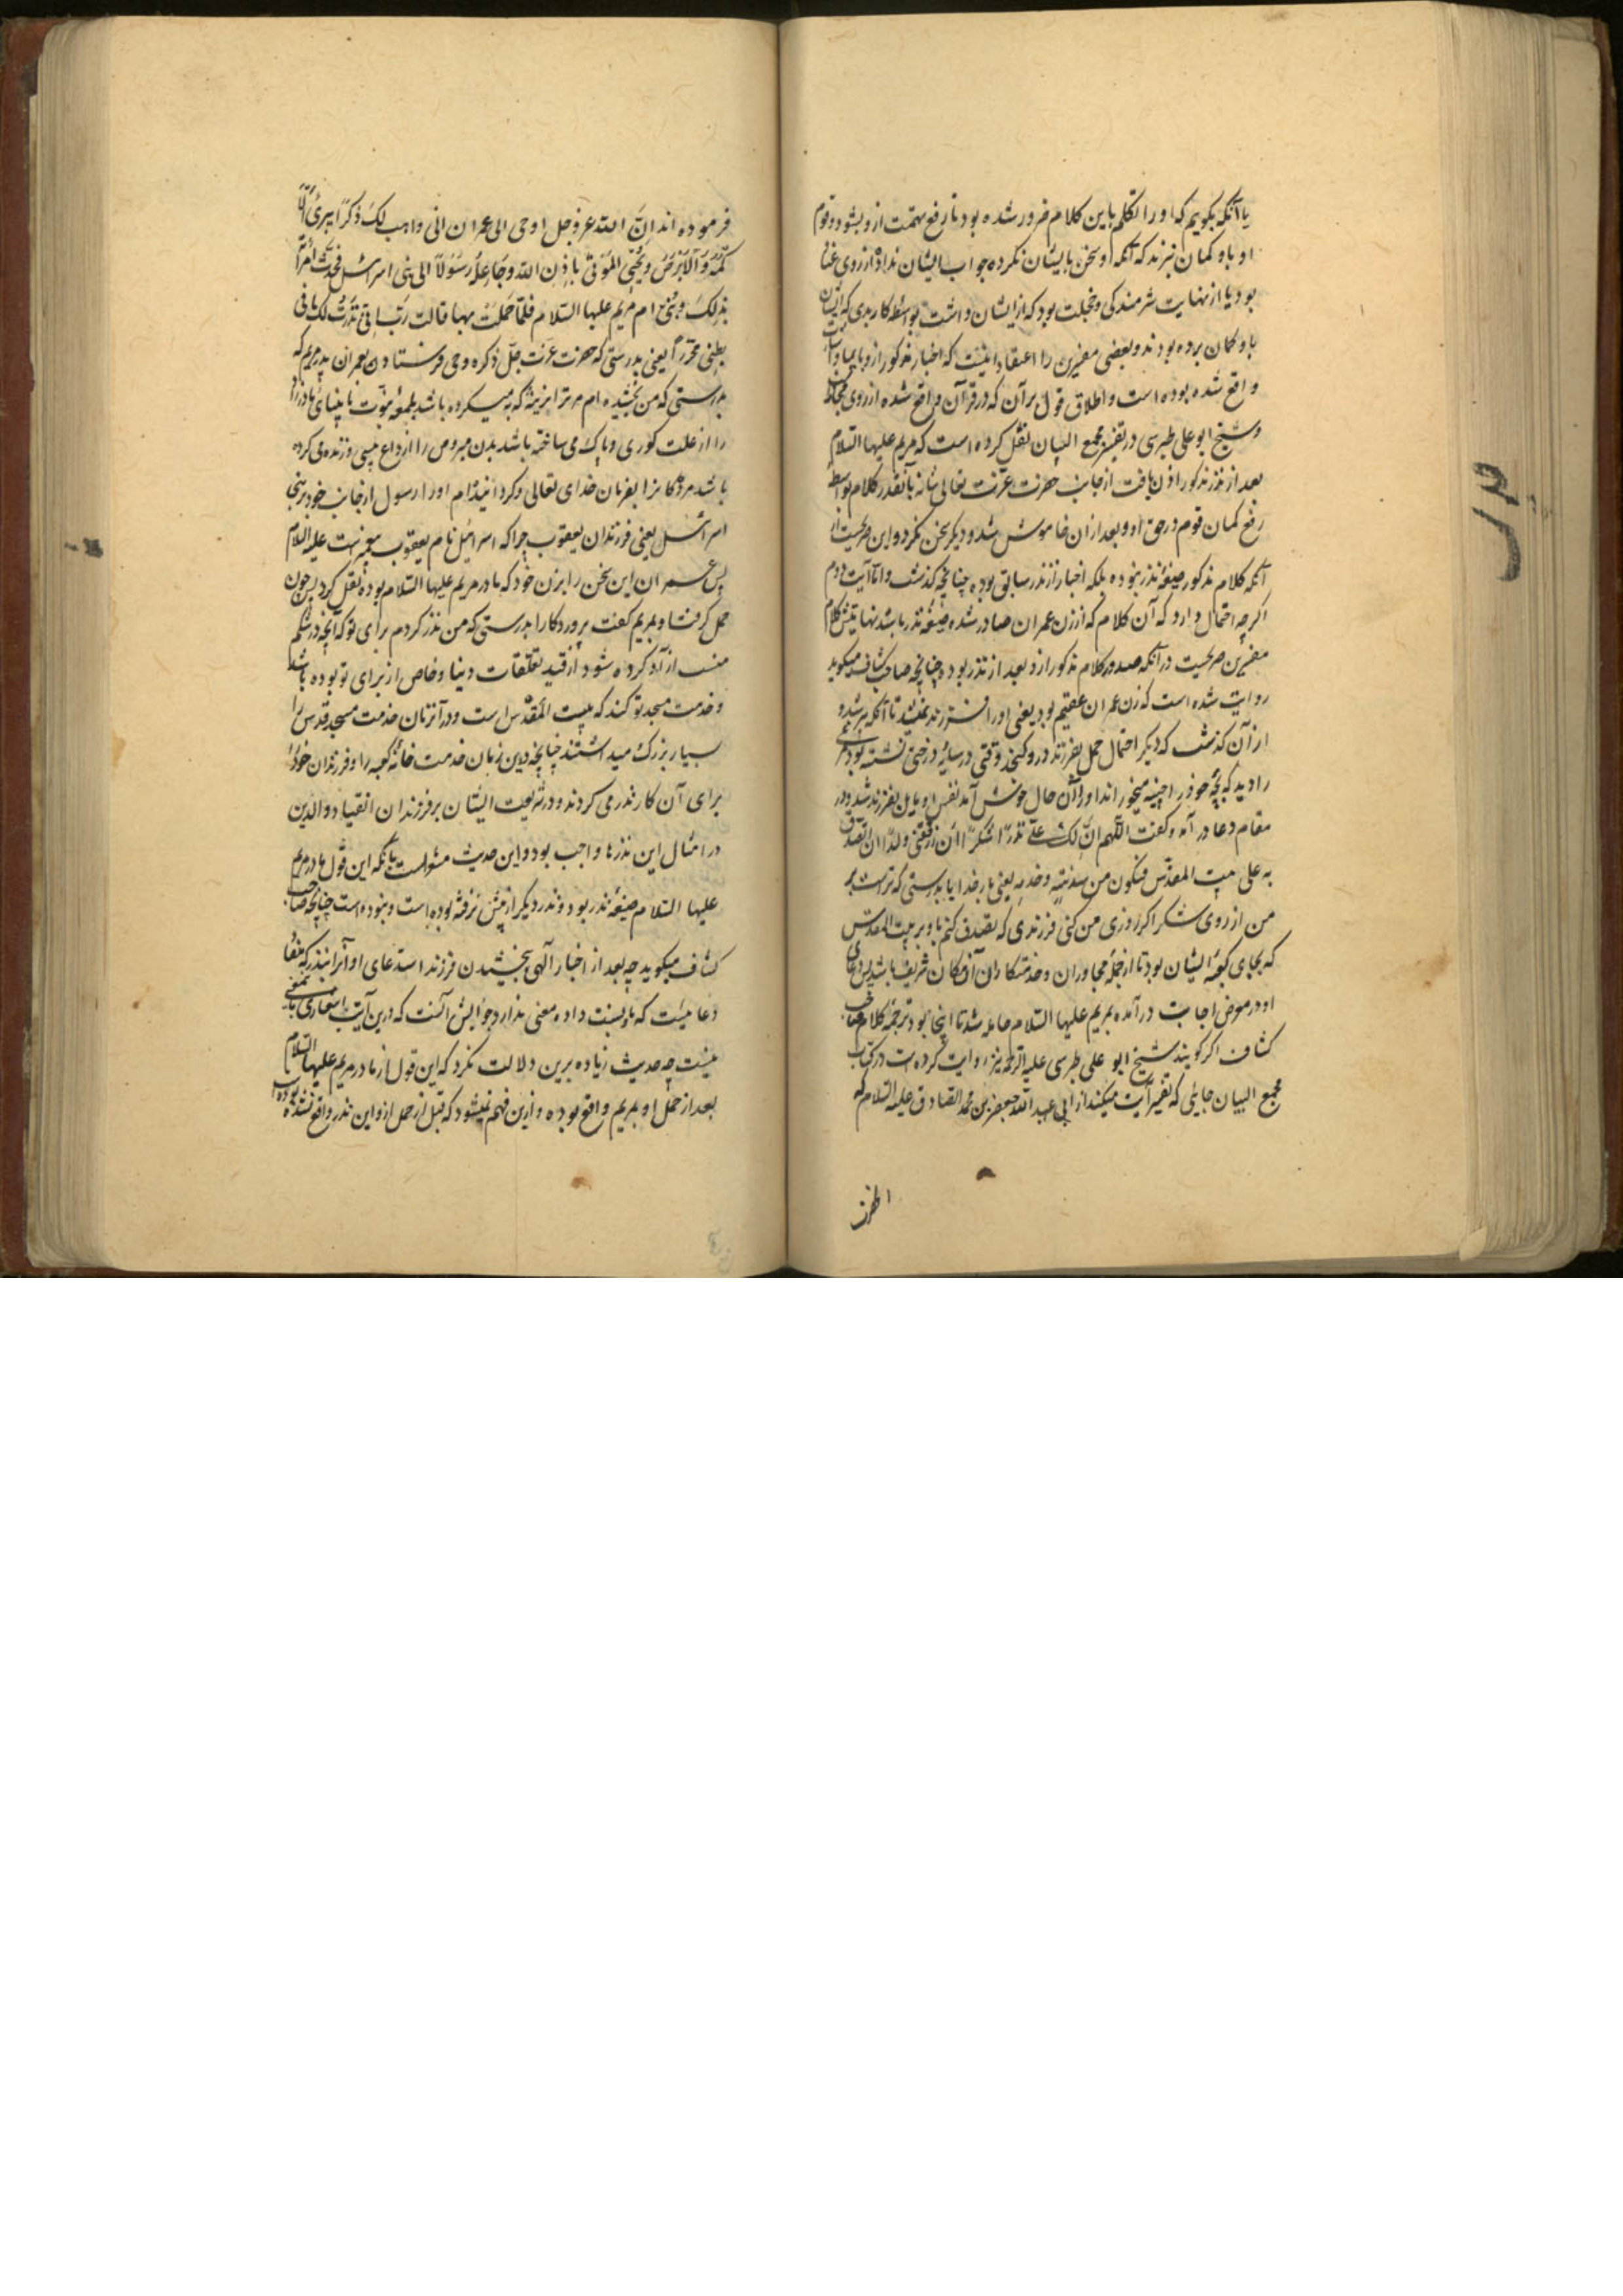 یا آنکه بگویم که او را تکلم باین کلام ضرور شده بود تا رفع تهمت ازو بشود و قوم
او باو کمان نبرند که آنکه او سخن بایشان نکرده جواب ایشان نداده از روی
بود یا از نهایت شرمندکی و خجلت بود که از ایشان داشت بواسطه کار بدی که ایشان
باو کمان برده بودند و بعضی مفسرین را اعتقاد اینست که اخبار مذکور ازو بایما و اشارت
واقع شده بوده است و اطلاق قول بر آن که در قرآن واقع شده از روی مجاز
و شیخ ابو علی طبرسی در تفسیر مجمع البیان نقل کرده است که مریم علیها السلام
بعد از نذر مذکور اذن یافت از جانب حضرت عزت تعالی شانه بآنقدر کلام بواسطه
رفع کمان قوم در حق او و بعد ازان خاموش شد و دیکر سخن نکرد و این صریحست در
آنکه کلام مذکور صیغه نذر نبوده بلکه اخبار از نذر سابق بوده چنانچه کذشت و اما آیت دوم
اکرچه احتمال دارد که آن کلام که از زن عمران صادر شده صیغه نذر باشد نهایتش کلام
مفسرین صریحست در آنکه صدور کلام مذکور ازو بعد از نذر بوده چنانچه صاحب کشاف میکوید
روایت شده است که زن عمران عقیم بود یعنی او را فرزند نمیشد تا آنکه پیر شد و
از آن کذشت که دیکر احتمال حمل بفرزند درو کنجد وقتی در سایه درختی نشسته بود مرغی
را دید که بچه خود را چینه میخوراند او را آن حال خوش آمد نفس او مایل بفرزند شد و در
مقام دعا در آمد و کفت اللهم ان لک علی نذرا شکرا ان رزقتنی ولدا ان اتصدق
به علی بیت المقدس فیکون من سدنته و خدمه یعنی بار خدایا بدرستی که تراست بر
من از روی شکر اکر روزی من کنی فرزندی که تصدق کنم باو بر بیت المقدس
که بجای کعبه ایشان بود تا از جمله مجاوران و خدمتکاران آن مکان شریف باشد پس دعای
او در معرض اجابت در آمده بمریم علیها السلام حامله شد تا اینجا بود ترجمه کلام صاحب
کشاف اکر کویند شیخ ابو علی طبرسی علیه الرحمه نیز روایت کرده است در کتاب
مجمع البیان جائی که تفسیر آیت میکند از ابی عبد الله جعفر بن محمد الصادق علیه السلام که
فرموده اند ان الله عز و جل اوحی الی عمران انی واهب لک ذکرا یبرئ الا
کمه و الابرص و یحیی الموتی باذن الله و جاعله رسولا الی بنی اسرائیل فحدث امراته
بذلک و هی ام مریم علیها السلام فلما حملت بها قالت رب انی نذرت لک ما فی
بطنی محررا یعنی بدرستی که حضرت عزت جل ذکره وحی فرستاد بعمران پدر مریم که
بدرستی که من بخشیده ام مر ترا نرینه که به میکرده باشد بلمعه نبوت نابینای مادرزاد
را از علت کوری و پاک می ساخته باشد بدن مبروص را از داغ پیسی و زنده می کرده
باشد مردکانرا بفرمان خدای تعالی و کردانیده ام او را رسول از جانب خود بر بنی
اسرائیل یعنی فرزندان یعقوب چرا که اسرائیل نام یعقوب پیغمبرست علیه السلام
پس عمران این سخن را بزن خود که مادر مریم علیها السلام بوده نقل کرد پس چون
حمل کرفت او بمریم کفت پروردکارا بدرستی که من نذر کردم برای تو که آنچه در شکم
منست ازاد کرده شود از قید تعلقات دنیا و خاص از برای تو بوده باشد
و خدمت مسجد تو کند که بیت المقدس است و در آنزمان خدمت مسجد قدس را
بسیار بزرک میداشتند چنانچه درین زمان خدمت خانه کعبه را و فرزندان خود را
برای آن کار نذر می کردند و در شریعت ایشان بر فرزندان انقیاد والدین
در امثال این نذرها واجب بود و این حدیث مشعرست بآنکه این قول مادر مریم
علیها السلام صیغه نذر بود و نذر دیکر از پیش نرفته بوده است و نبوده است چنانچه صاحب
کشاف میکوید چه بعد از اخبار آلهی ببخشیدن فرزند استدعای او آنرا بنذر که متضمن
دعائیست که باو نسبت داده معنی ندارد جوابش آنست که درین آیت اشعاری باین معنی
نیست چه حدیث زیاده برین دلالت نکرد که این قول از مادر مریم علیها السلام
بعد از حمل او بمریم واقع بوده و ازین فهم نمیشود که قبل از حمل ازو این نذر واقع نشده بوده